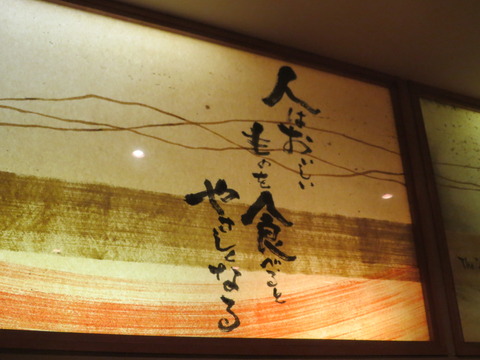 人はおいしい
ものを食べると
やさしくなる